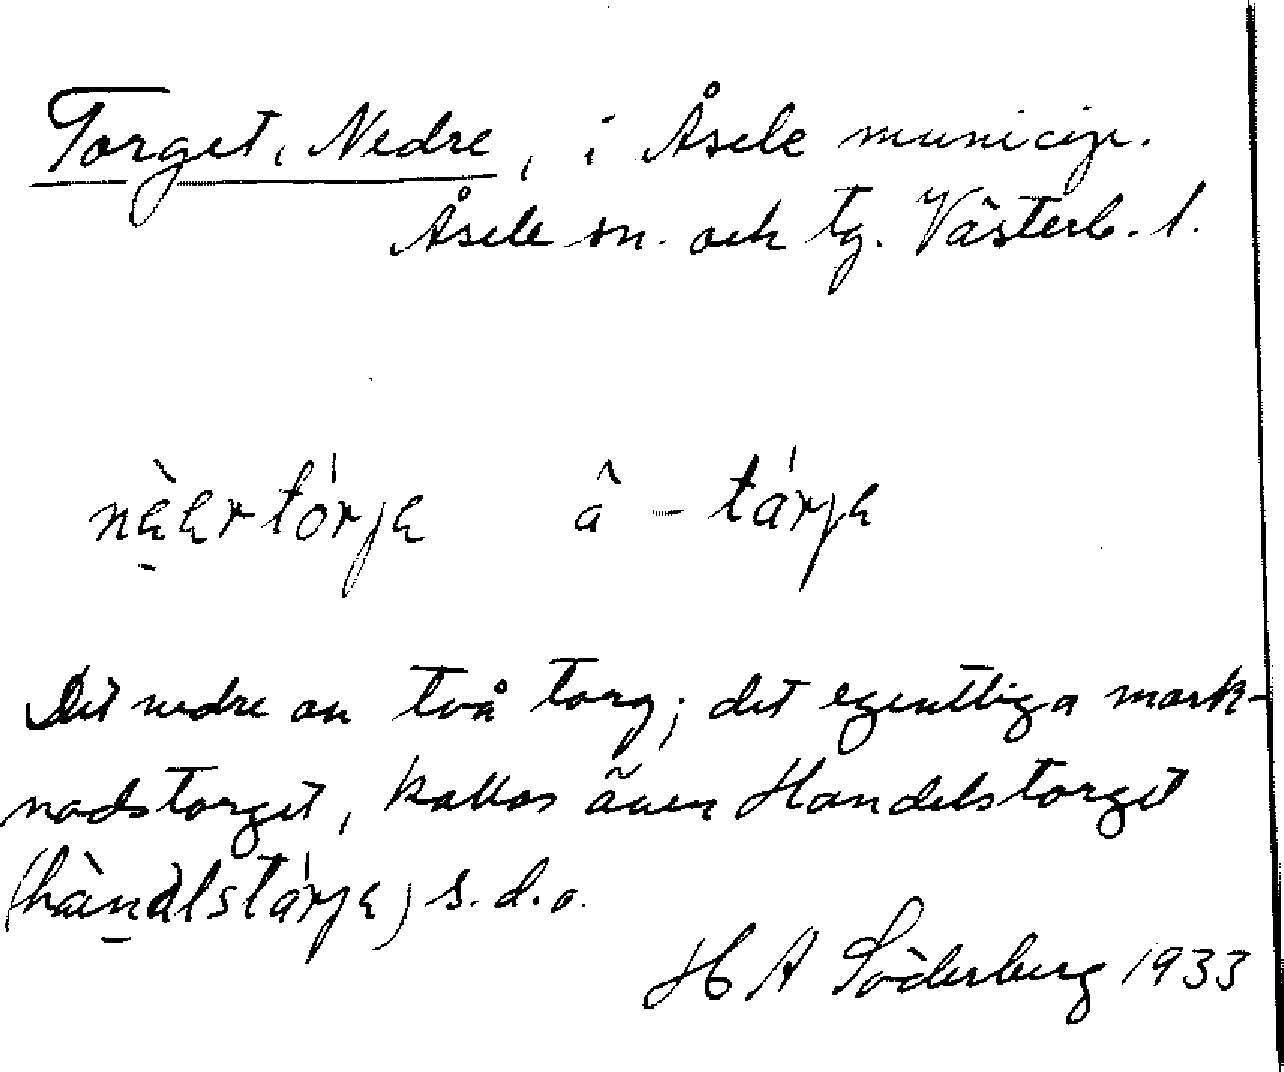 Torget, Nedre, i Åsele municip.
Åsele sn. och tg. Västerb. l.
nè̱ertórje â - tárje
Det nedre av två torg; det egentliga mark-
nadstorget, kallas även Handelstorget
(hàṉdlstárje) s.d.o.
H A Söderberg 1933